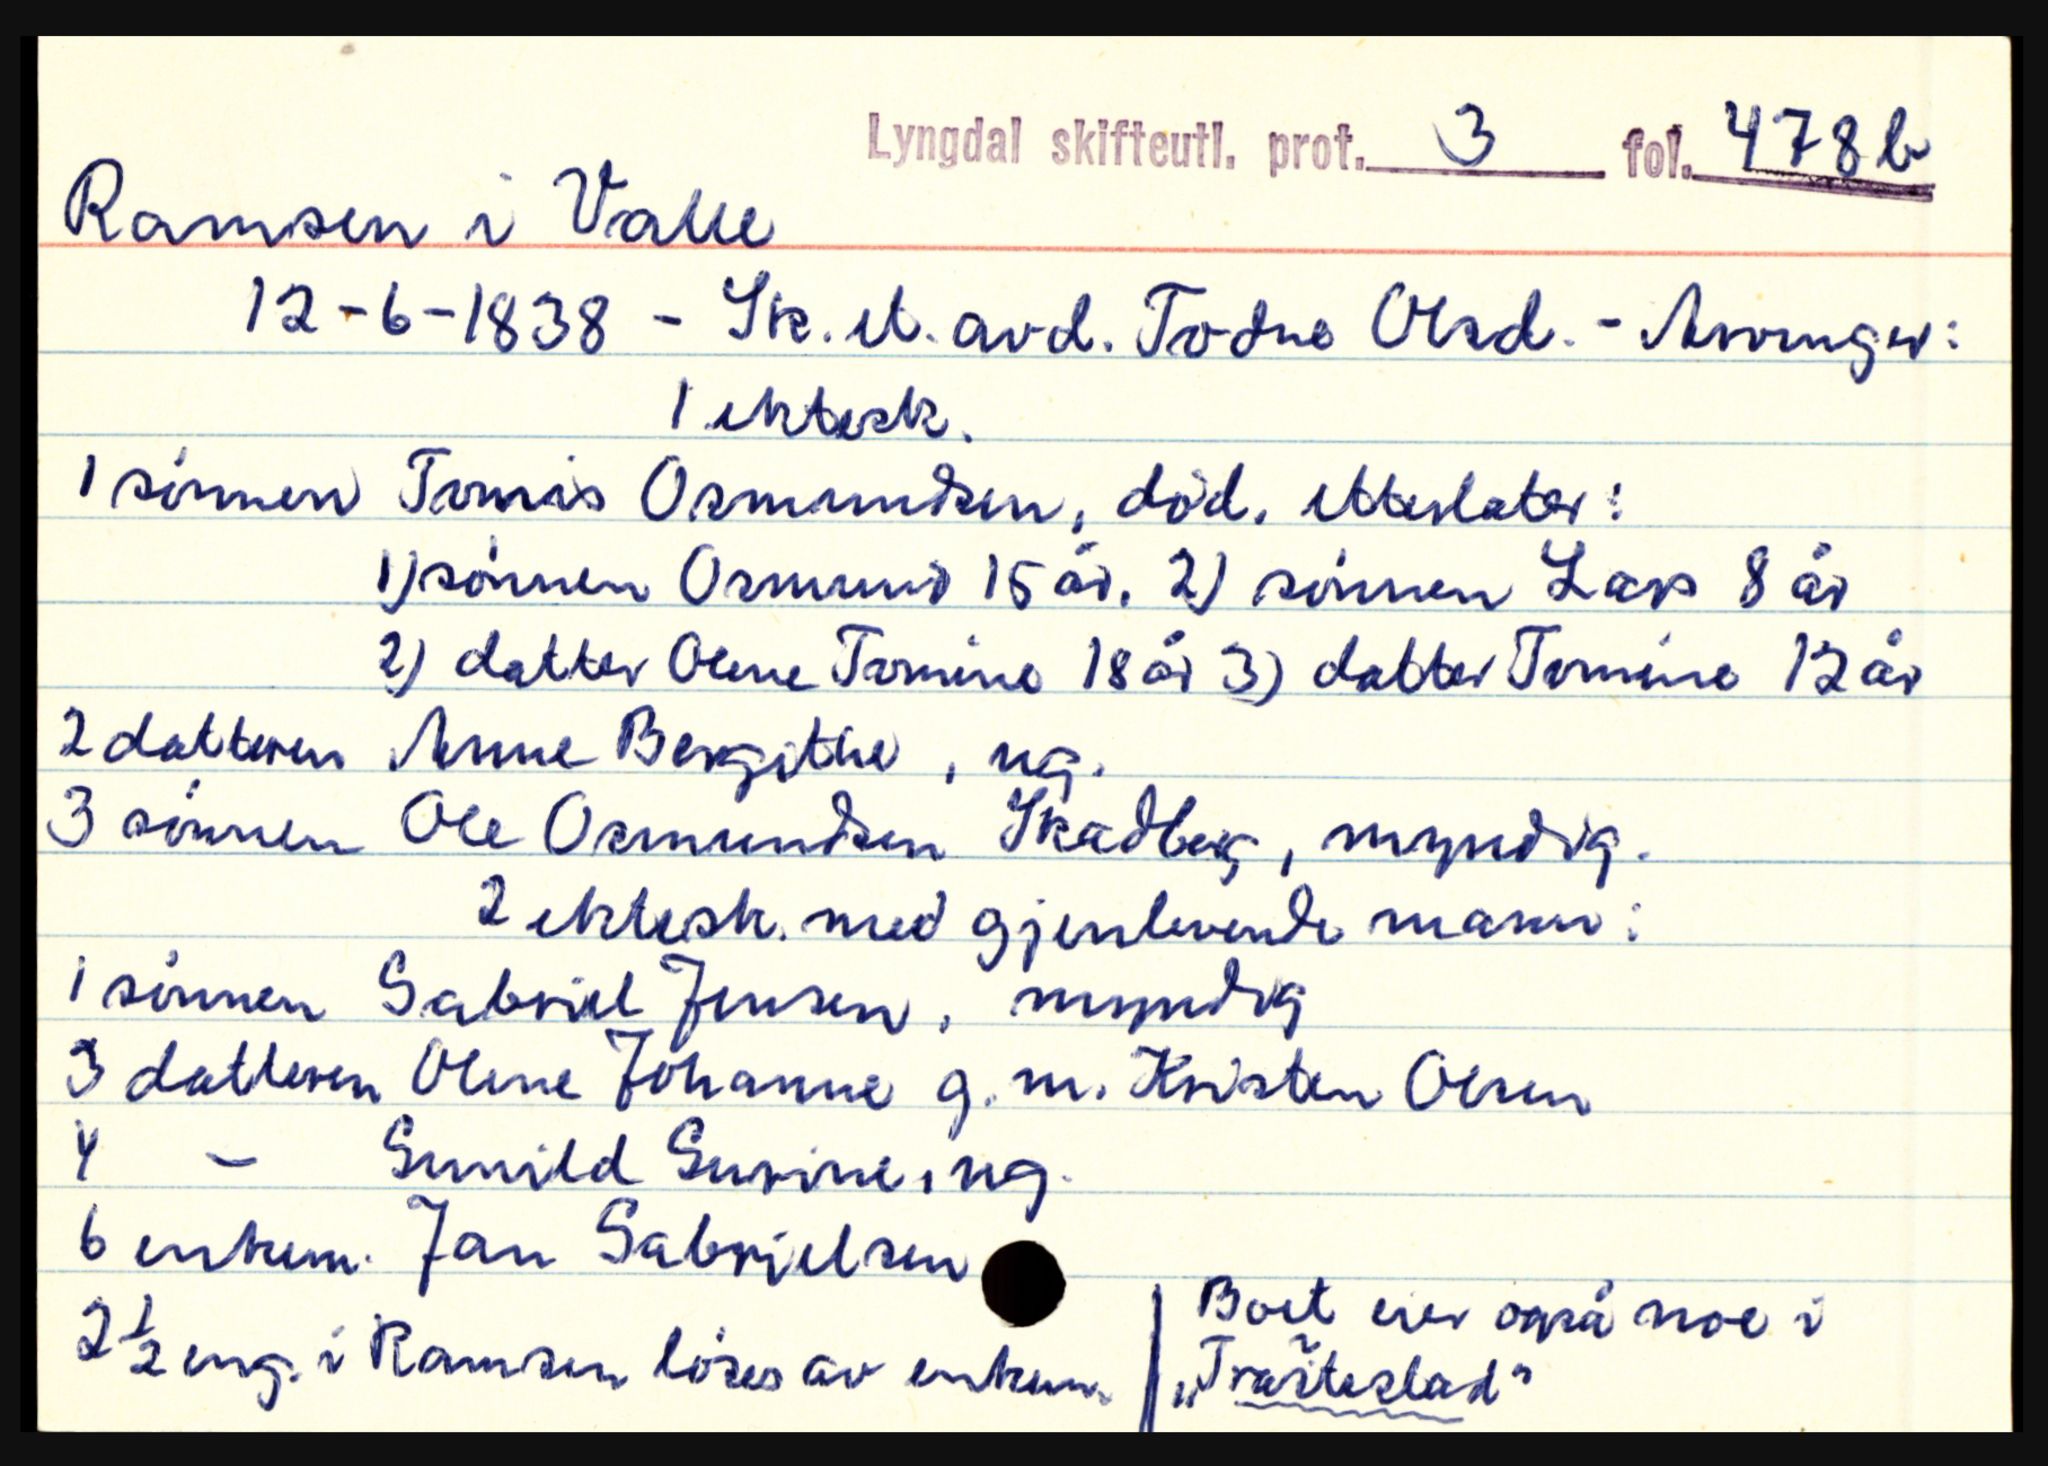 Lyngdal skifteutl. prot. 3 fol. 478b
Ramsen i Valle
12-6-1838 - Sk. et. avd. Todne Olsd. - Arvinger:
1 ektesk.
1 sönnen Tomis Osmundsen, död, etterlater:
1) sönnen Osmund 15 år. 2) sönnen Lars 8 år
2) datter Olene Tomine 18 år 3) datter Tomine 12 år
2 datteren Anne Bergithe, ug.
3 sönnen Ole Osmundsen Skadberg, myndig.
2 ektesk. med gjenlevende mann:
1 sönnen Gabriel Jensen, myndig
3 datteren Olene Johanne g. m. Kristen Olsen
4 - Gunild Surine, ug.
6 enkem. Jan Gabrielsen
2 1/2 eng. i Ramsen löses av enkem.
Boet eier også noe i
"Tråsteslad"